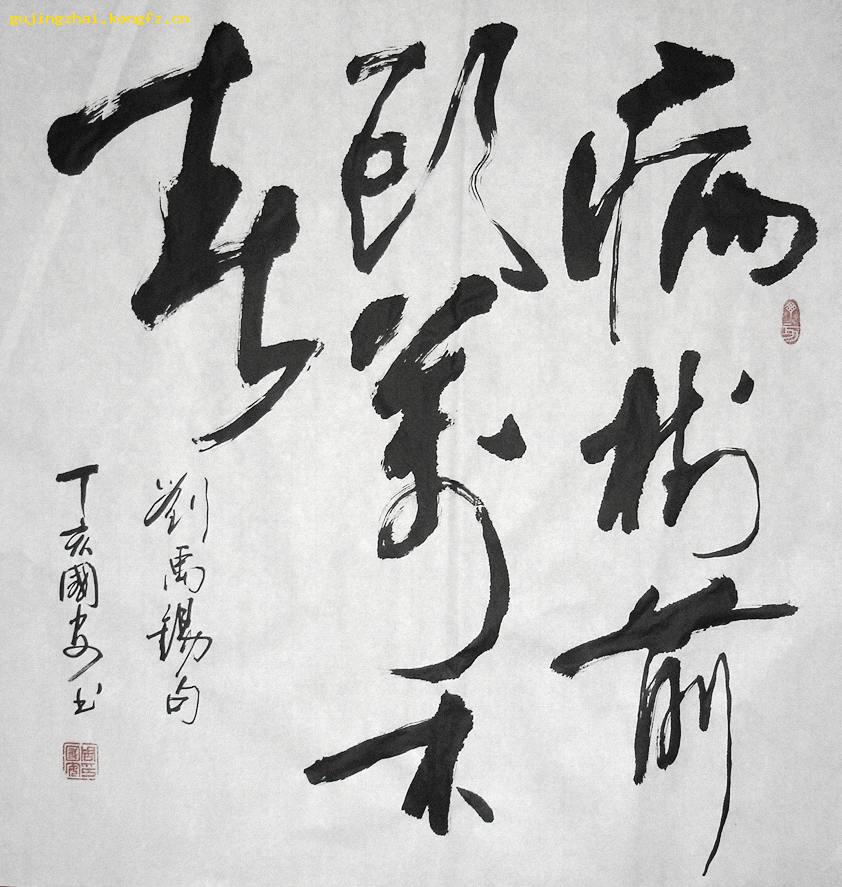 病樹前
頭萬木
春
劉禹錫句
丁亥國安書
gujingzhai.kongfz.cn